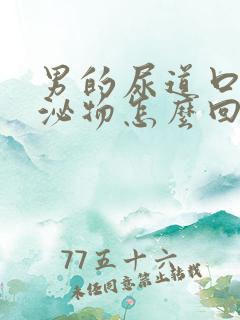 男的尿道口
泌物怎麽回
77五十六
未经同意禁止转载